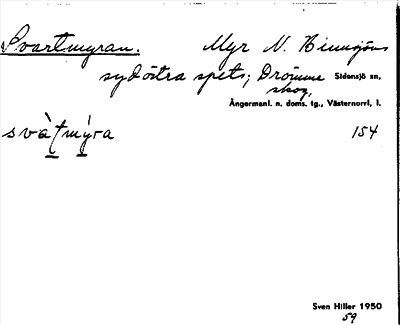 Svartmyran. Myr N. Hinnsjöns
sydöstra spets; Drömme Sidensjö sn,
skog,
Ångermanl. n. doms. tg., Västernorrl. l.
svàṭmýra 154
Sven Hiller 1950
59